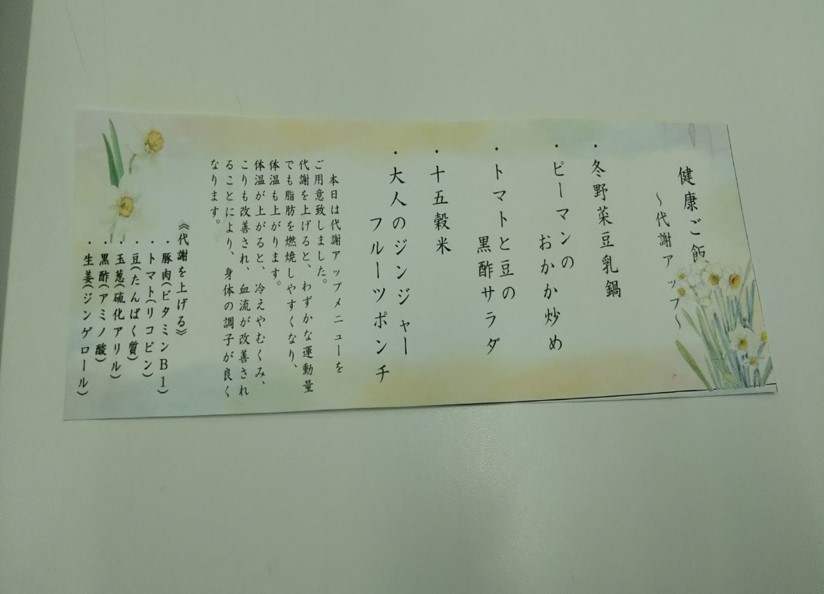 健康ご飯
～代謝アップ～
・冬野菜豆乳鍋
・ピーマンの
おかか炒め
・トマトと豆の
黒酢サラダ
・十五穀米
・大人のジンジャー
フルーツポンチ
本日は代謝アップメニューを
ご用意致しました。
代謝を上げると、わずかな運動量
でも脂肪を燃焼しやすくなり、
体温も上がります。
体温が上がると、冷えやむくみ、
こりも改善され、血流が改善され
ることにより、身体の調子が良く
なります。
《代謝を上げる》
・豚肉(ビタミンB1)
・トマト(リコピン)
・豆(たんぱく質)
・玉葱(硫化アリル)
・黒酢(アミノ酸)
・生姜(ジンゲロール)